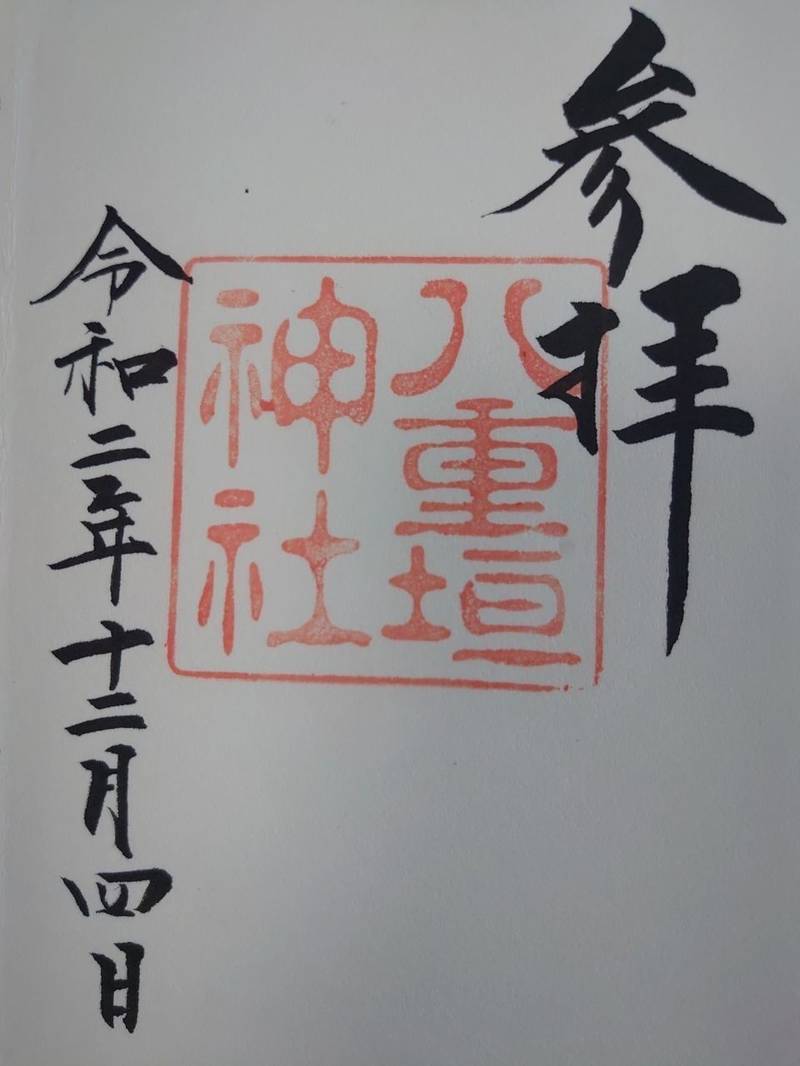 參拝
八重垣
神社
令和二年十二月四日